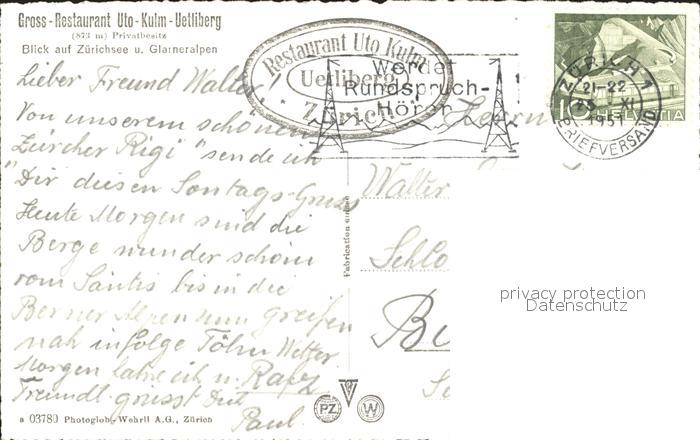 Gross-Restaurant Uto-Kulm-Uetliberg
(873 m) Privatbesitz
Blick auf Zürichsee u. Glarneralpen
Restaurant Uto Kulm
Uetliberg
* Zürich *
Werdet
Rundspruch-
Hörer
ZÜRICH 1
21-22
XI
1951
BRIEFVERSAND
10 HELVETIA
Lieber Freund Walter!
Von unserem schönen
"Zürcher Rigi" sende ich
Dir diesen Sontags-Gruss
Heute Morgen sind die
Berge wunder schön
vom Säntis bis in die
Berner Alpen zum greifen
nah infolge Föhn Wetter
Morgen ich u.
Freundl. grüsst Dich
Paul.
Walter
Schlo
Be
Fabrication suisse
privacy protection
Datenschutz
PZ W
a 03780 Photoglob-Wehrli A.G., Zürich